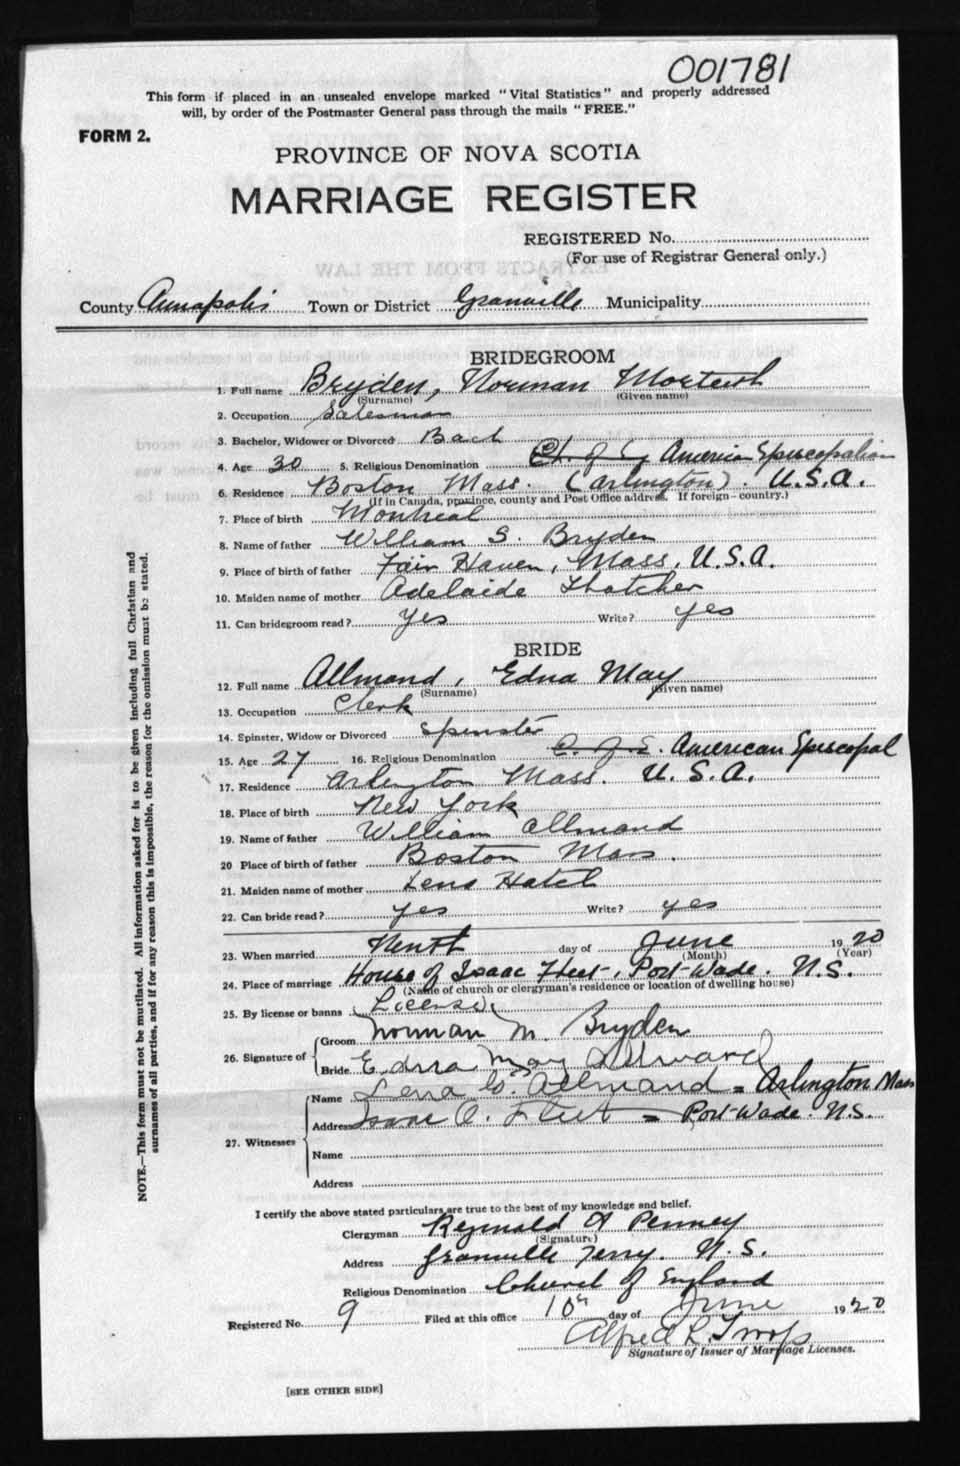 001781
This form if placed in an unsealed envelope marked "Vital Statistics" and properly addressed
will, by order of the Postmaster General pass through the mails "FREE."
FORM 2.
PROVINCE OF NOVA SCOTIA
MARRIAGE REGISTER
REGISTERED No.
(For use of Registrar General only.)
EXTRACTS FROM THE LAW
County Annapolis Town or District Granville Municipality
BRIDEGROOM
1. Full name Bryden, Norman
(Surname) (Given name)
2. Occupation Salesman
3. Bachelor, Widower or Divorced Bach
4. Age 30 5. Religious Denomination Ch. of E American Episcopalian
6. Residence Boston Mass. (Arlington). U.S.A.
(If in Canada, province, county and Post Office address. If foreign—country.)
7. Place of birth Montreal
8. Name of father William S. Bryden
9. Place of birth of father Fair Haven, Mass, U.S.A.
10. Maiden name of mother Adelaide Thatcher
11. Can bridegroom read? yes Write? yes
BRIDE
12. Full name Allmand, Edna May
(Surname) (Given name)
13. Occupation Clerk
14. Spinster, Widow or Divorced Spinster
15. Age 27 16. Religious Denomination C. of E. American Episcopal
17. Residence Arlington Mass. U.S.A.
18. Place of birth New York
19. Name of father William Allmand
20 Place of birth of father Boston Mass.
21. Maiden name of mother Lena Hatch
22. Can bride read? yes Write? yes
23. When married day of June 1920
(Month) (Year)
24. Place of marriage House of Isaac Fleet, Port Wade. N.S.
(Name of church or clergyman's residence or location of dwelling house)
25. By license or banns License
26. Signature of Groom Norman M. Bryden
Bride Edna May Allmand
27. Witnesses Name Lena G. Allmand = Arlington Mass
Address Isaac O. Fleet = Port Wade. N.S.
Name
Address
I certify the above stated particulars are true to the best of my knowledge and belief.
Clergyman Reginald A Penney
(Signature)
Address Granville Ferry. N.S.
Religious Denomination Church of England
Registered No. 9 Filed at this office 10th day of June 1920
Alfred R. Troop
Signature of Issuer of Marriage Licenses.
[SEE OTHER SIDE]
NOTE.—This form must not be mutilated. All information asked for is to be given including full Christian and
surnames of all parties, and if for any reason this is impossible, the reason for the omission must be stated.